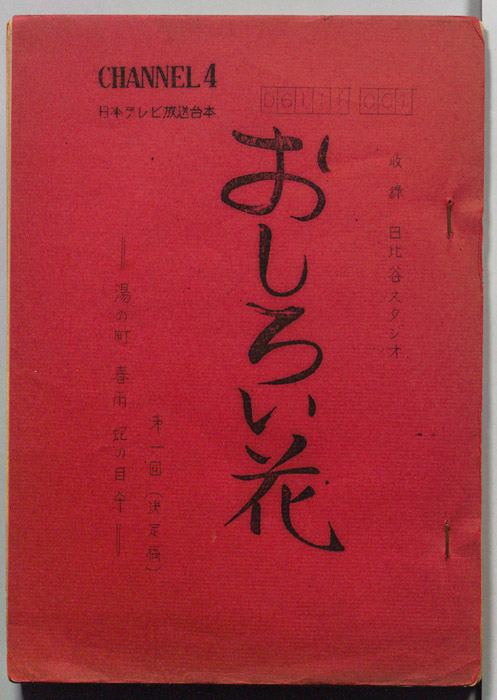 CHANNEL 4
日本テレビ放送台本
収録 日比谷スタジオ
おしろい花
第一回(決定稿)
湯の町 春雨 蛇の目傘